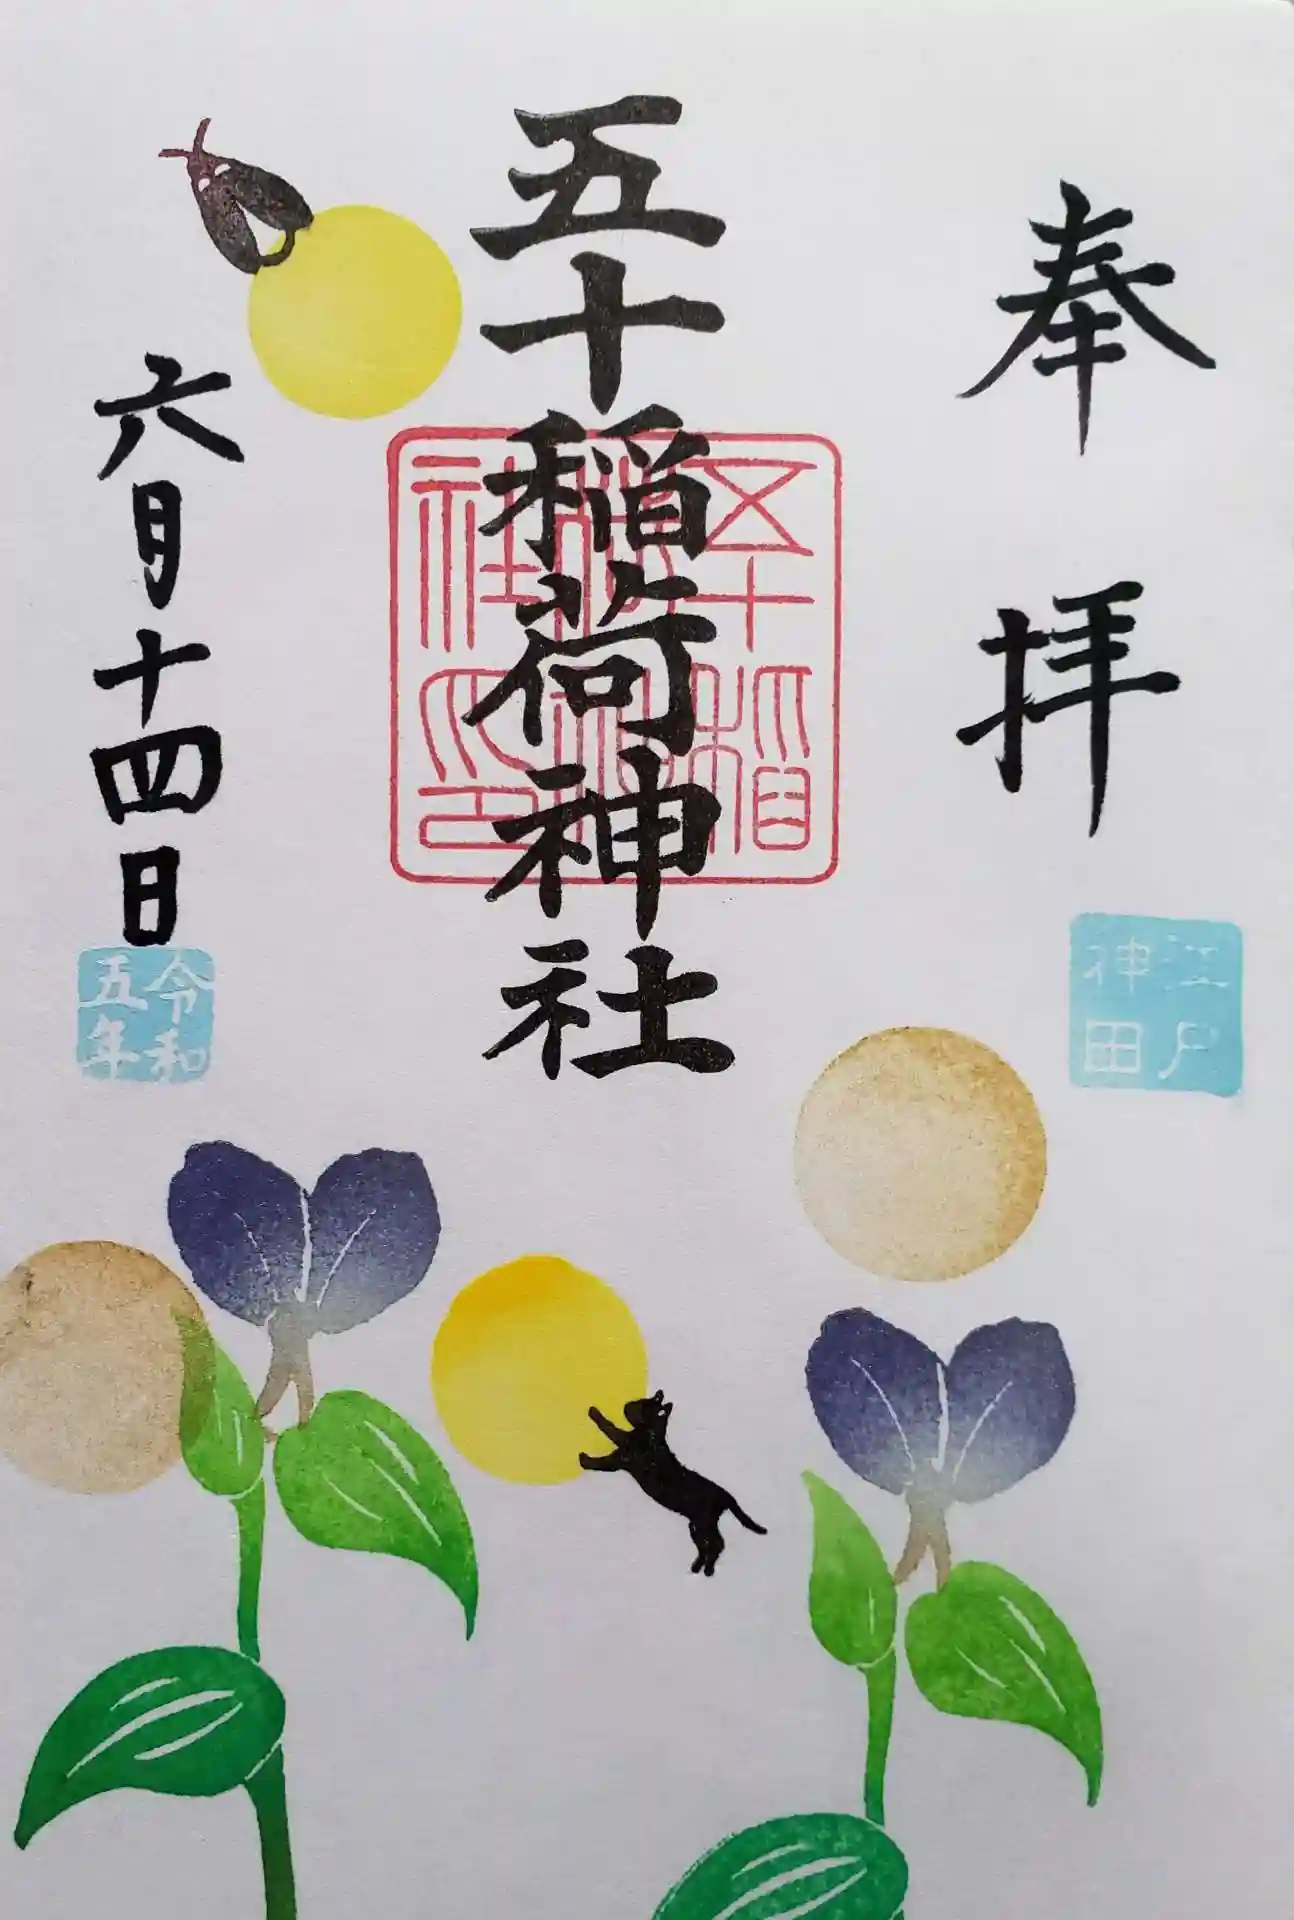 奉拝
江戸
神田
五十稲荷神社
五十稲
荷神
社印
六月十四日
令和
五年